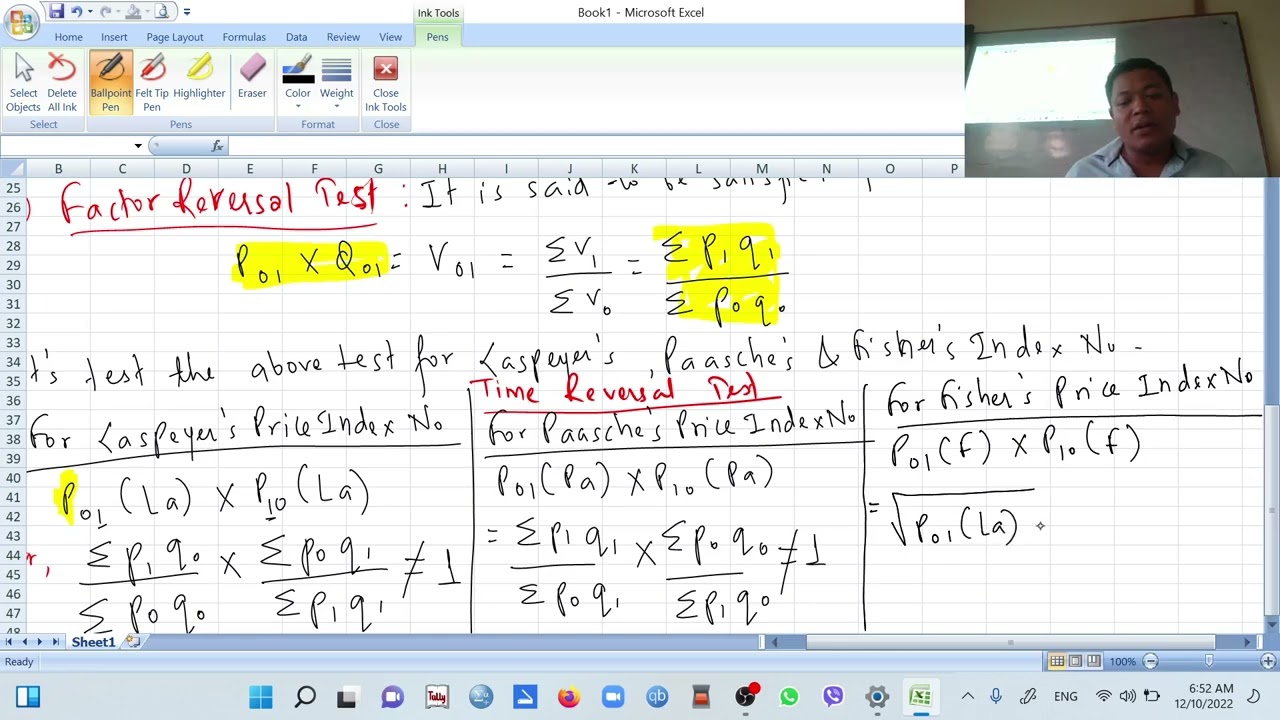 Ink Tools
Book1 - Microsoft Excel
Home Insert Page Layout Formulas Data Review View Pens
Select Objects
Delete All Ink
Ballpoint Pen
Felt Tip Pen
Highlighter
Eraser
Color
Weight
Close Ink Tools
Select Pens Format Close
fx
B C D E F G H I J K L M N O P
25
26
27
28
29
30
31
32
33
34
35
36
37
38
39
40
41
42
43
44
45
46
47
48
) Factor Reversal Test : It is said to be
P₀₁ X Q₀₁ = V₀₁ = ΣV₁ / ΣV₀ = Σp₁q₁ / Σp₀q₀
t's test the above test for Laspeyer's, Paasche's & Fisher's Index No -
Time Reversal Test
For Laspeyer's Price Index No
P₀₁(La) X P₁₀(La)
r, Σp₁q₀ / Σp₀q₀ X Σp₀q₁ / Σp₁q₁ ≠ 1
For Paasche's Price Index No
P₀₁(Pa) X P₁₀(Pa)
= Σp₁q₁ / Σp₀q₁ X Σp₀q₀ / Σp₁q₀ ≠ 1
For Fisher's Price Index No
P₀₁(f) X P₁₀(f)
= √P₀₁(La)
Sheet1
Ready
100%
Tally
qb
ENG
6:52 AM
12/10/2022